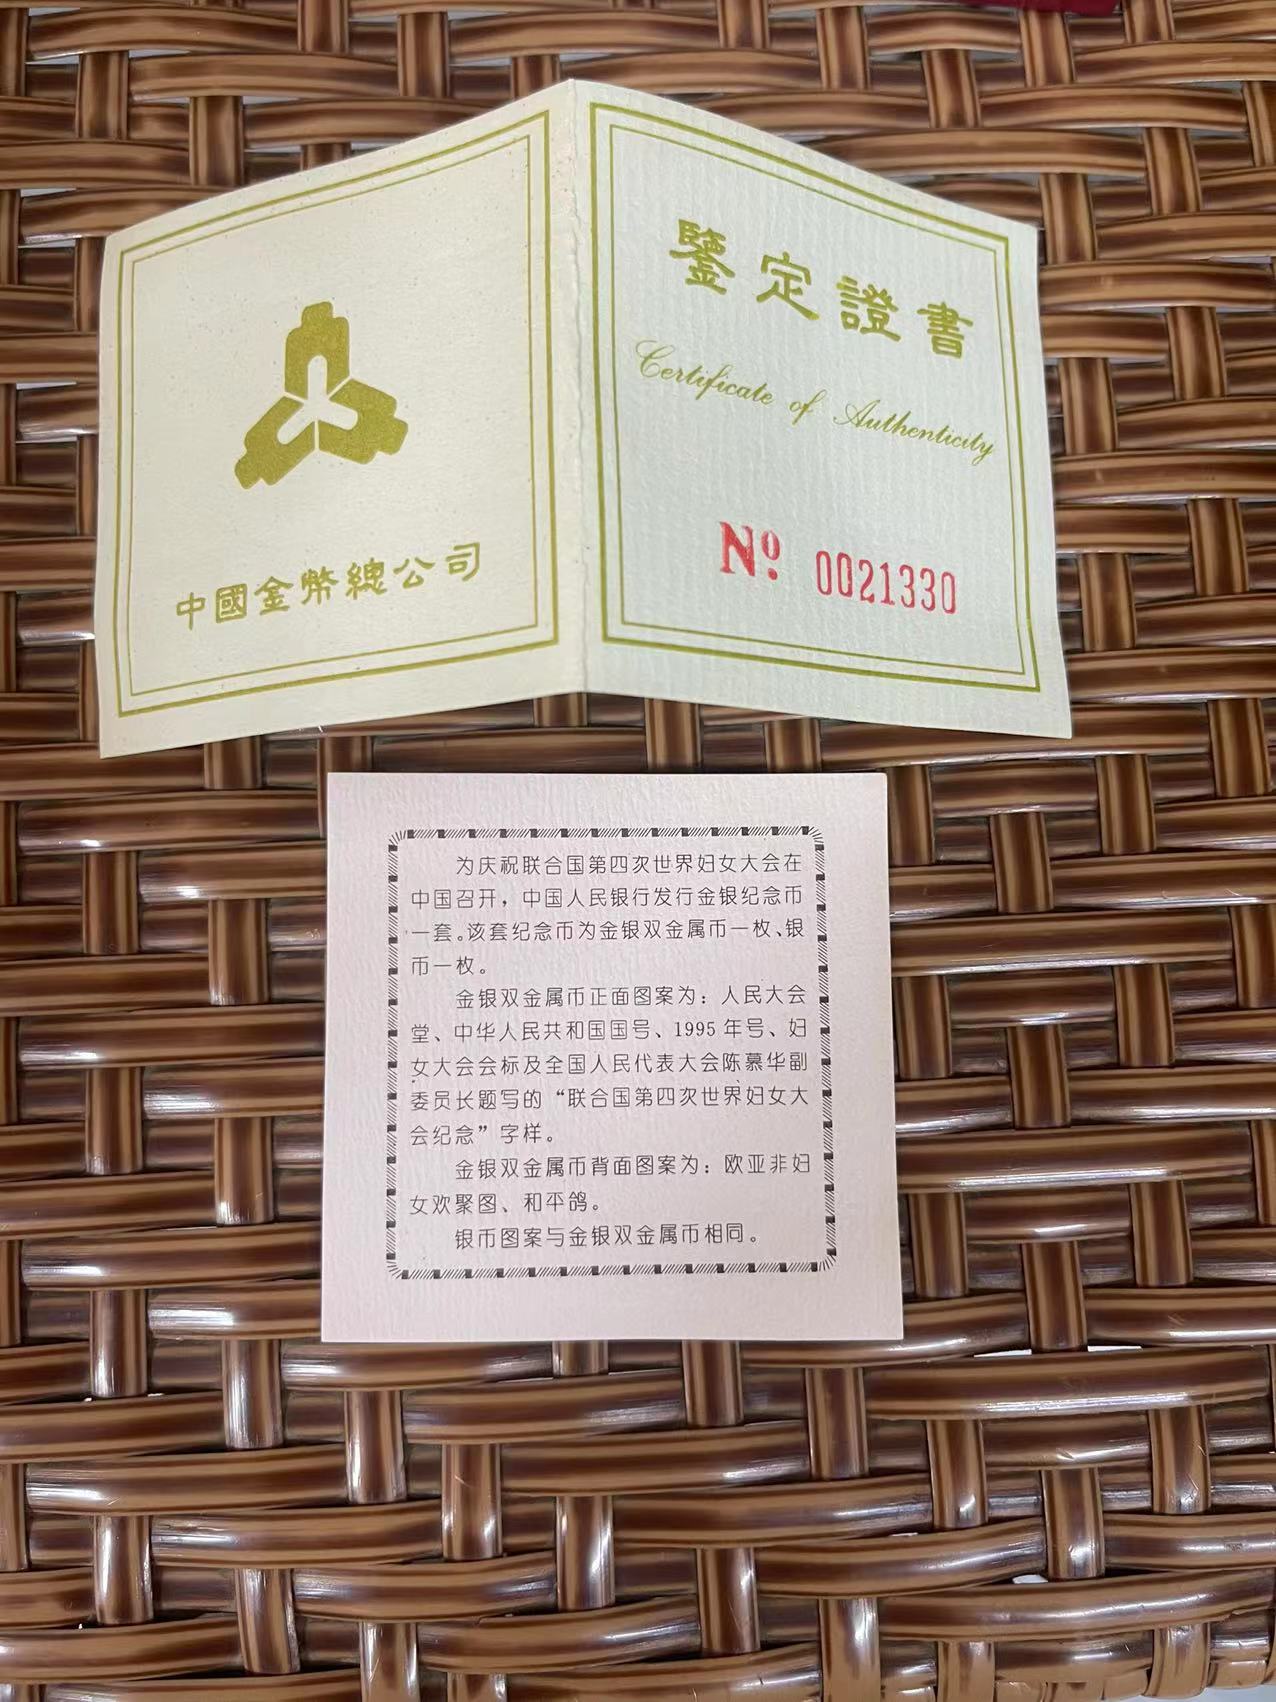 中國金幣總公司
鑒定證書
Certificate of Authenticity
Nº. 0021330
为庆祝联合国第四次世界妇女大会在
中国召开，中国人民银行发行金银纪念币
一套。该套纪念币为金银双金属币一枚、银
币一枚。
金银双金属币正面图案为：人民大会
堂、中华人民共和国国号、1995年号、妇
女大会会标及全国人民代表大会陈慕华副
委员长题写的“联合国第四次世界妇女大
会纪念”字样。
金银双金属币背面图案为：欧亚非妇
女欢聚图、和平鸽。
银币图案与金银双金属币相同。